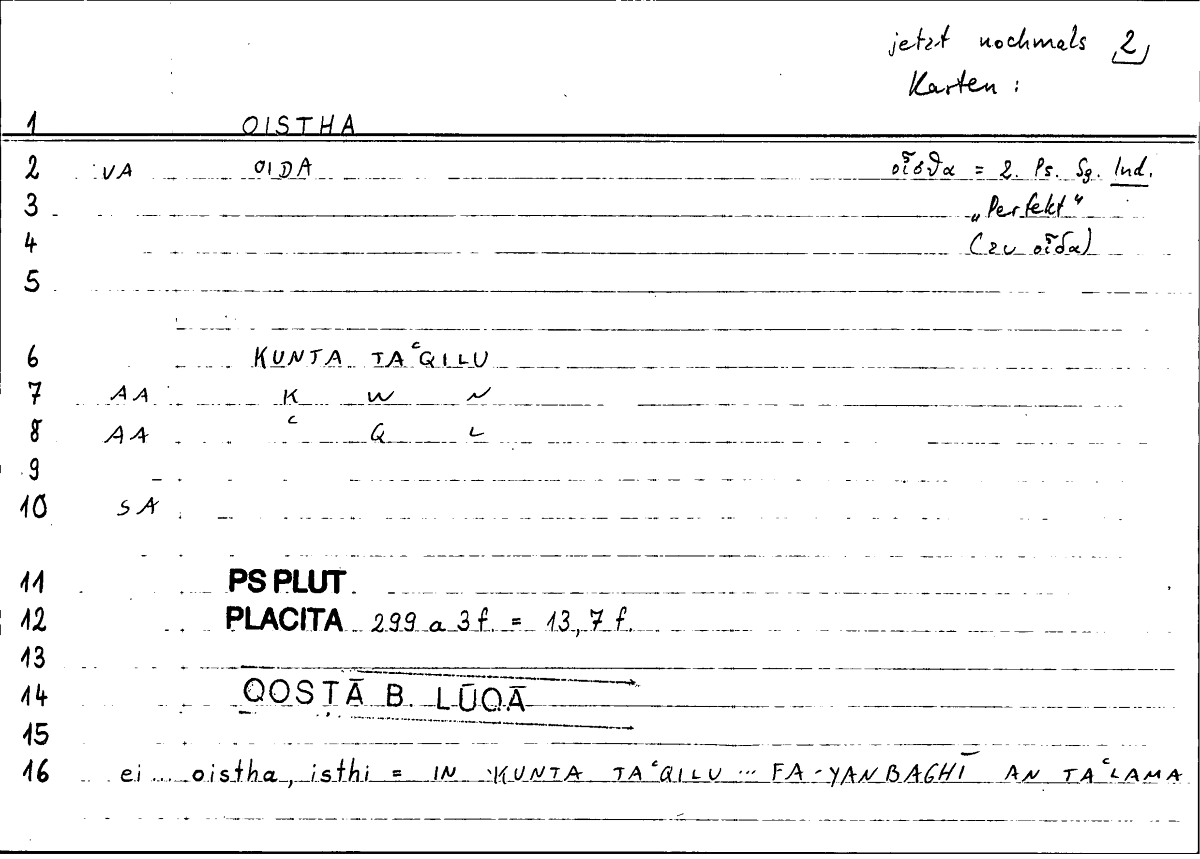 jetzt nochmals 2
Karten :
1 OISTHA
2 VA OIDA οἶσθα = 2. Ps. Sg. Ind.
3 „Perfekt“
4 (zu οἶδα)
5
6 KUNTA TAʿQILU
7 AA K W N
8 AA ʿ Q L
9
10 SA
11 PS PLUT.
12 PLACITA 299 a 3 f. = 13,7 f.
13
14 QOSṬĀ B. LŪQĀ
15
16 ei ... oistha, isthi = IN KUNTA TAʿQILU ... FA-YANBAGHĪ AN TAʿLAMA